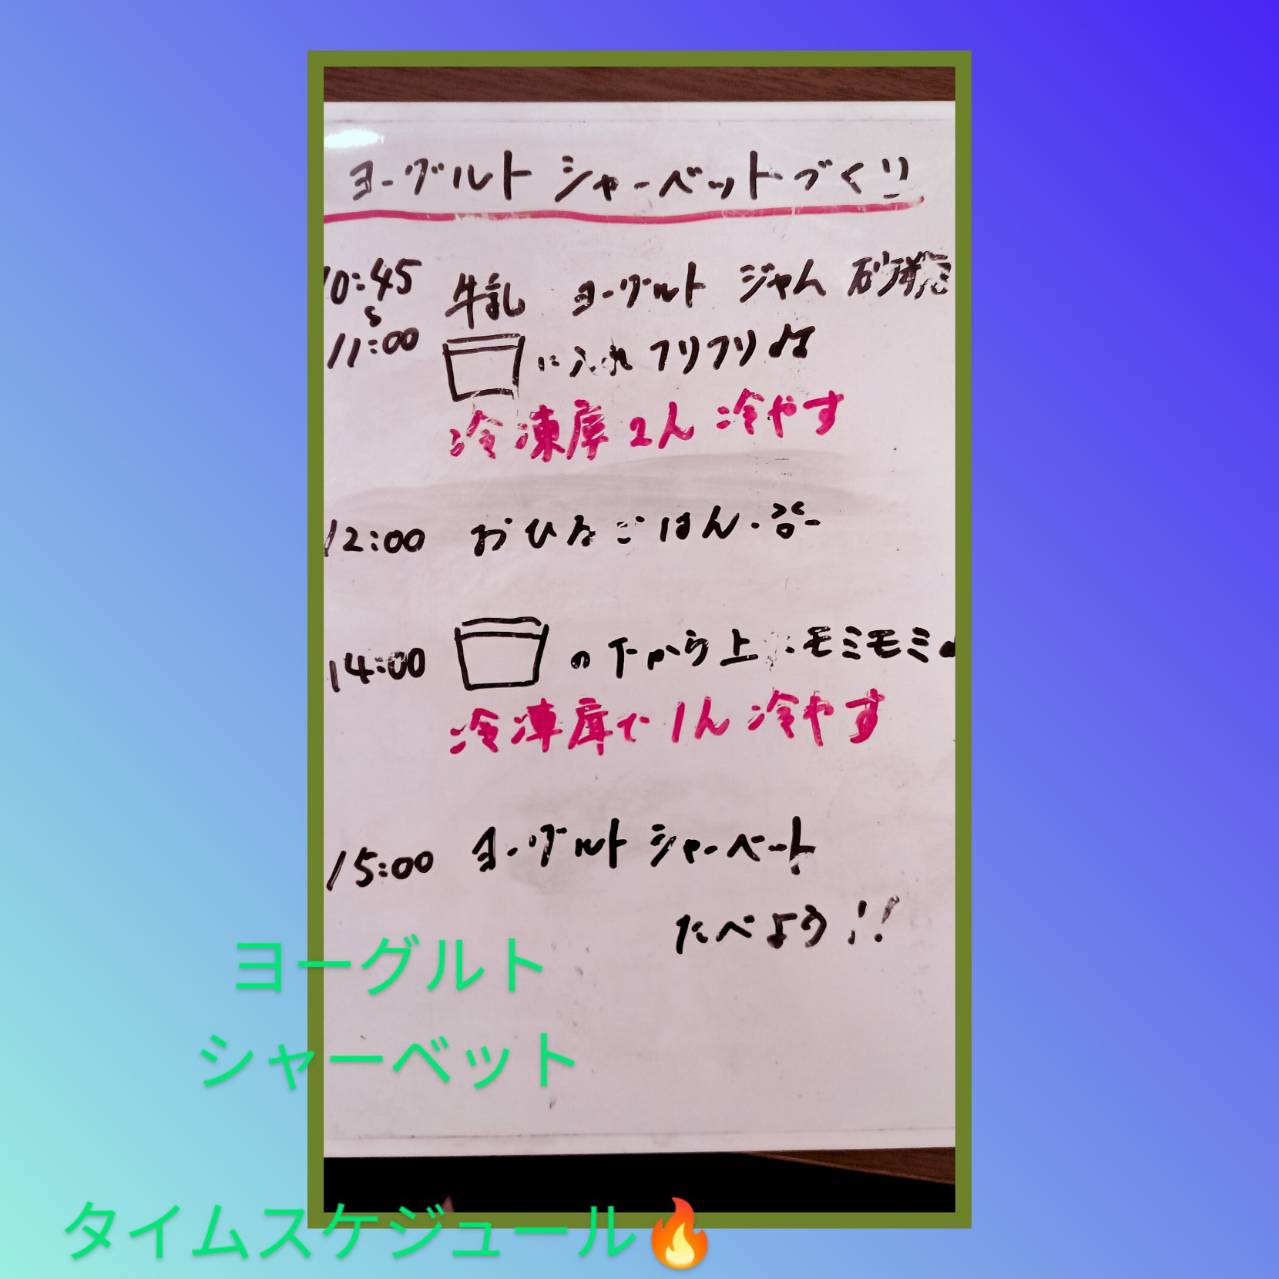 ヨーグルト シャーベットづくり
10:45 牛乳 ヨーグルト ジャム 砂糖を
11:00 にいれ フリフリ
冷凍庫 2h 冷やす
12:00 おひるごはん
14:00 の下から上 モミモミ
冷凍庫で 1h 冷やす
15:00 ヨーグルト シャーベット
たべよう!!
ヨーグルト
シャーベット
タイムスケジュール🔥